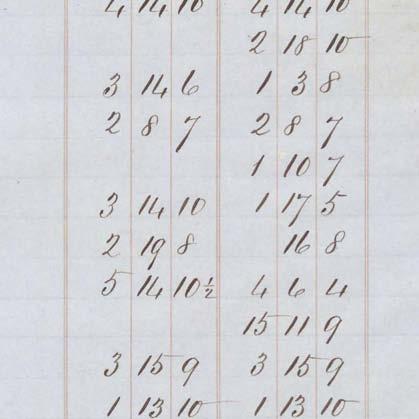 4 14 10 4 14 10
2 18 10
3 14 6 1 3 8
2 8 7 2 8 7
1 10 7
3 14 10 1 17 5
2 19 8 16 8
5 14 10½ 4 6 4
15 11 9
3 15 9 3 15 9
1 13 10 1 13 10